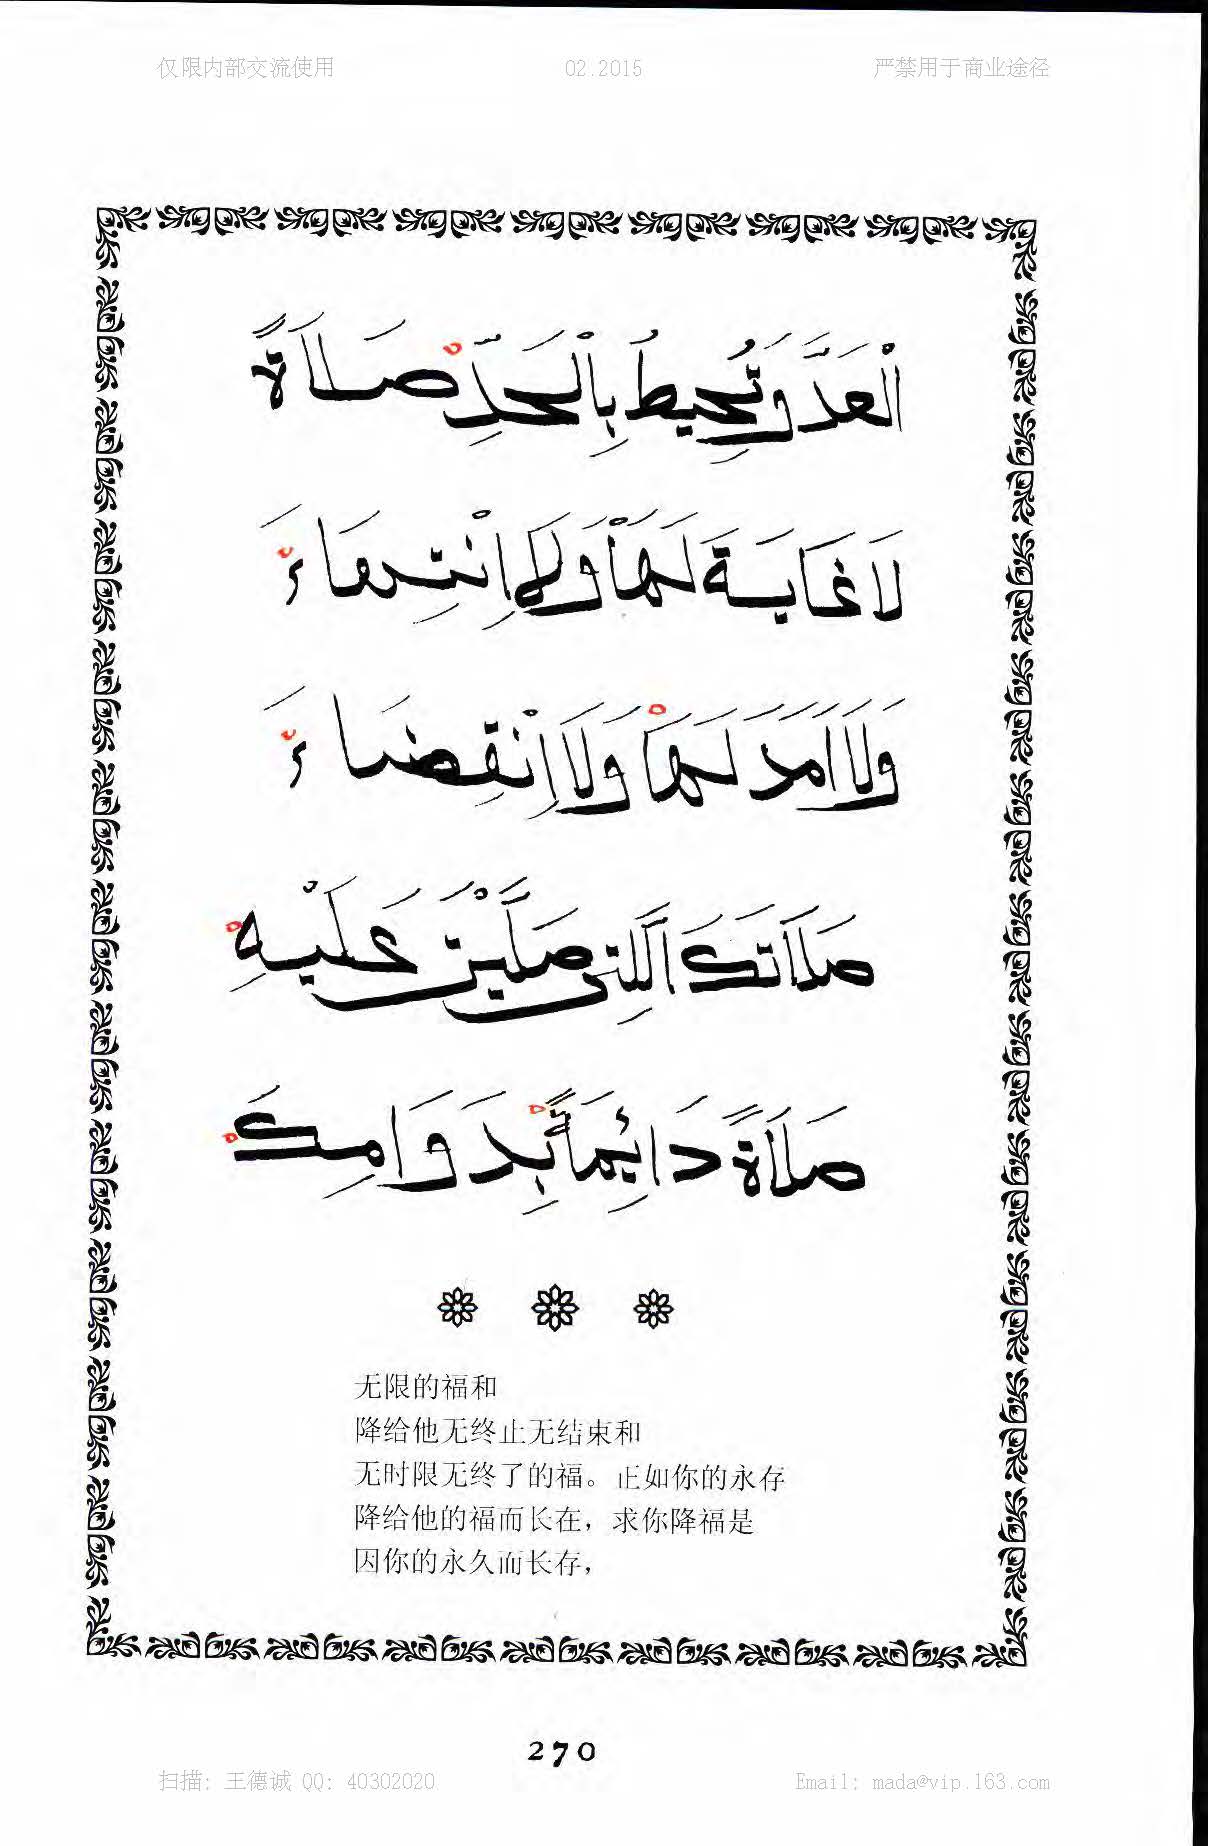 仅限内部交流使用 02.2015 严禁用于商业途径
الْعَدَّ وَتُحِيطُ بِالْحَدِّ صَلَاةً
لَا غَايَةَ لَهَا وَلَا اِنْتِهَاءَ
وَلَا اَمَدَ لَهَا وَلَا اِنْقِضَاءَ
صَلَاتَكَ الَّتِى صَلَّيْتَ عَلَيْهِ
صَلَاةً دَائِمَةً بِدَوَامِكَ
无限的福和
降给他无终止无结束和
无时限无终了的福。正如你的永存
降给他的福而长在，求你降福是
因你的永久而长存，
270
扫描: 王德诚 QQ: 40302020 Email: mada@vip.163.com